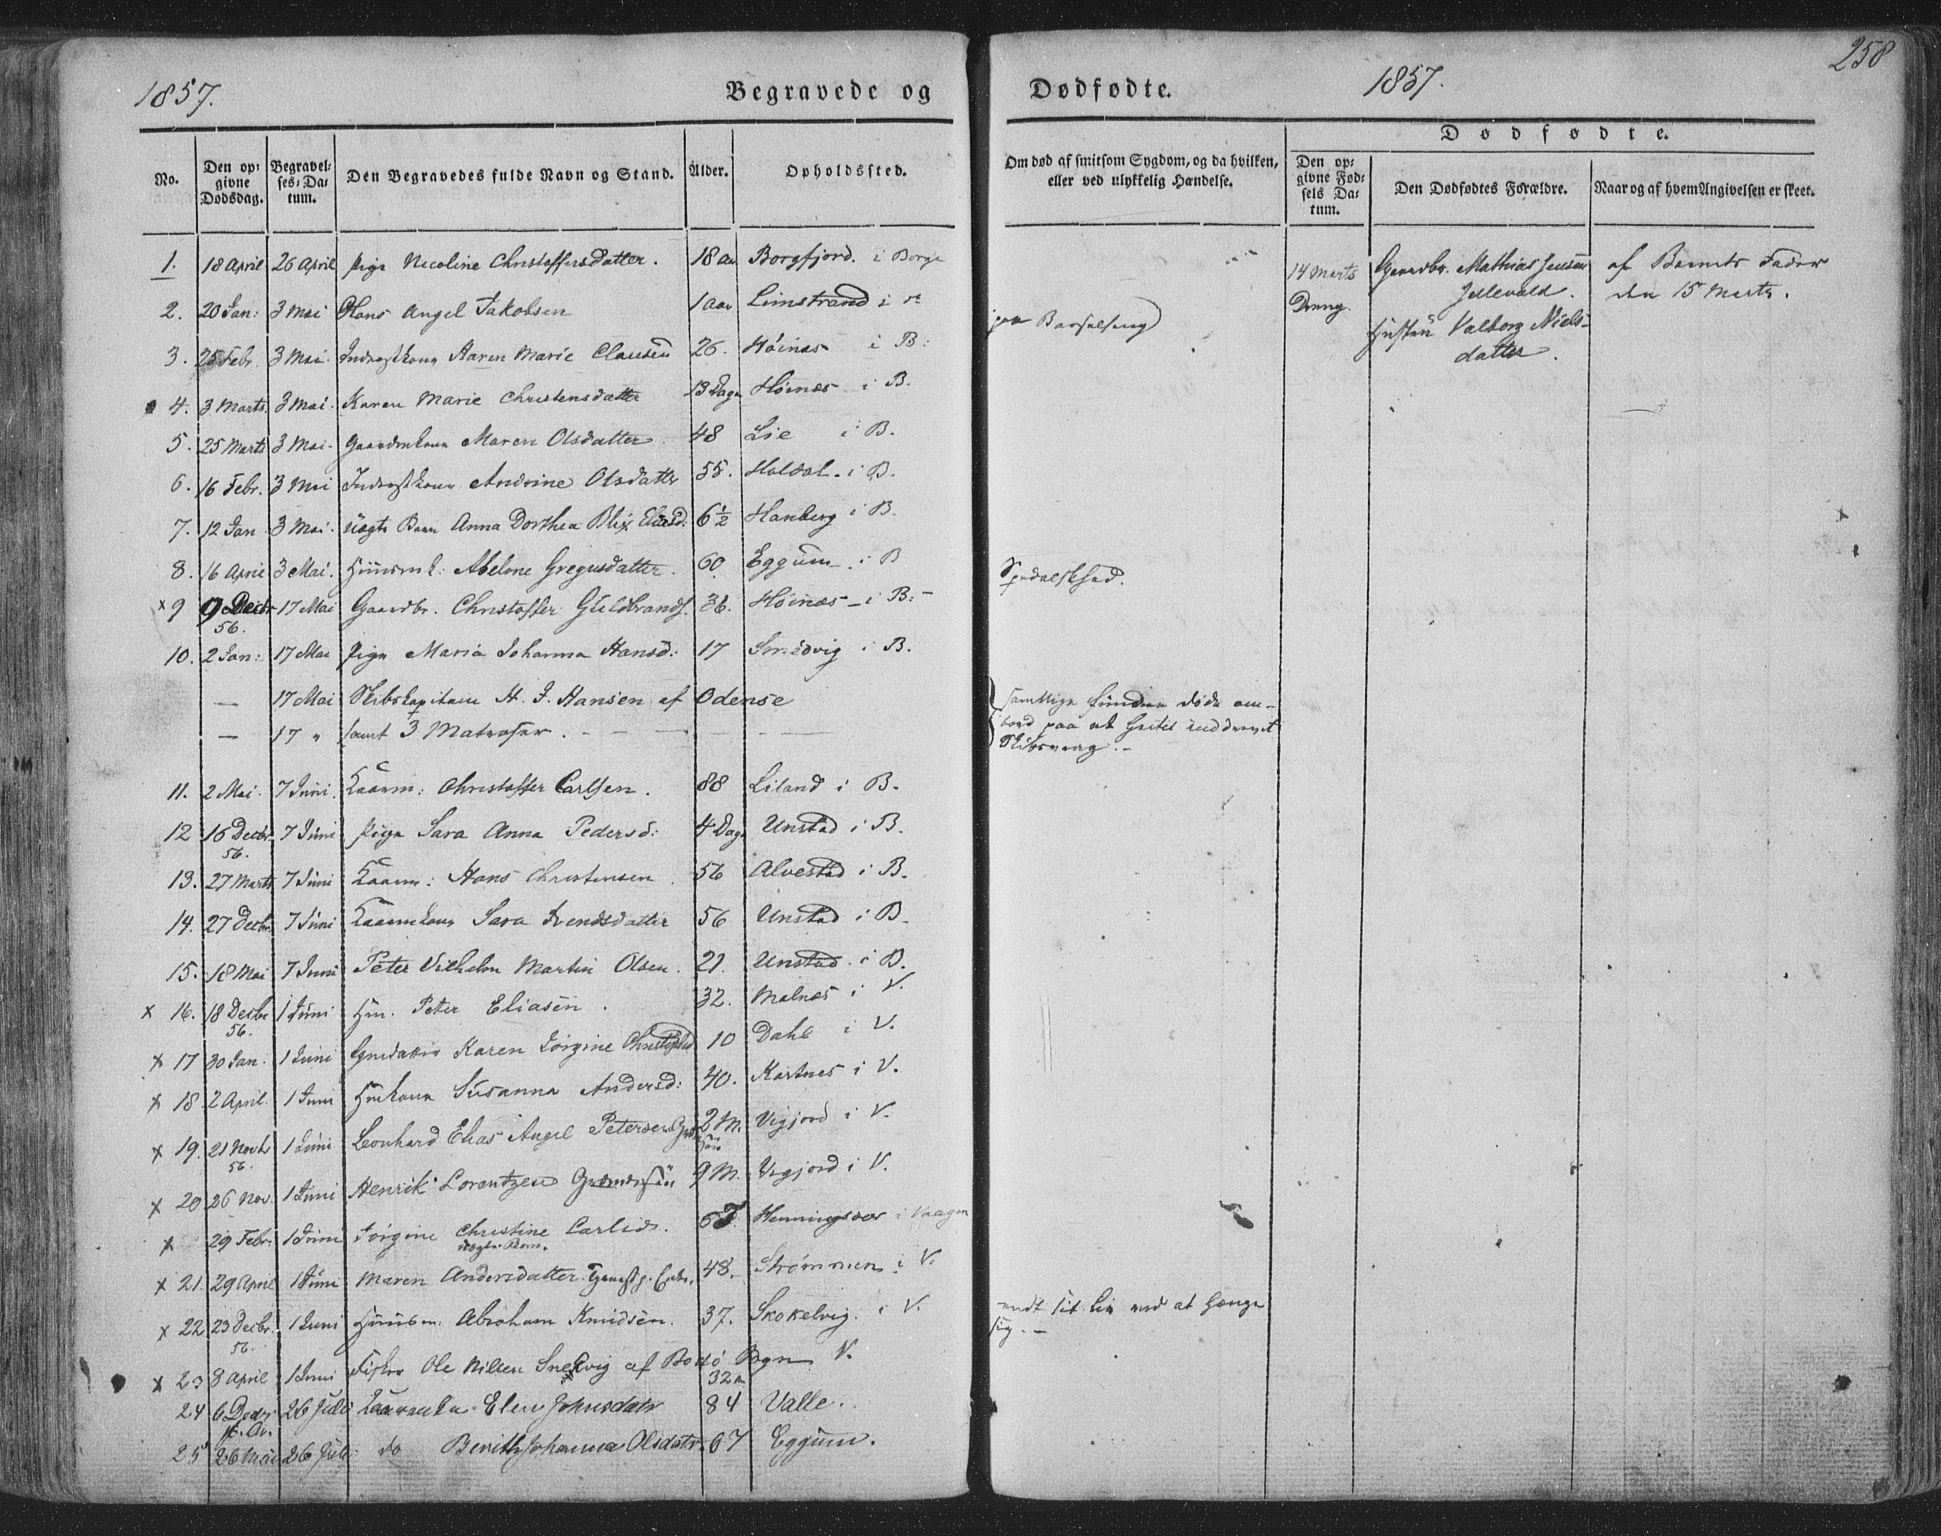 1857.
Begravede og
Dødfødte.
1857.
258
No.
Den opgivne Dødsdag.
Begravelses-Datum.
Den Begravedes fulde Navn og Stand.
Alder.
Opholdssted.
Om død af smitsom Sygdom, og da hvilken, eller ved ulykkelig Hændelse.
Dødfødte.
Den opgivne Fødsels Datum.
Den Dødfødtes Forældre.
Naar og af hvem Angivelsen er skeet.
1. 18 April 26 April Pige Nicoline Christoffersdatter. 18 Aar Borgfjord. i Borge
2. 20 Jan: 3 Mai Hans Angel Jakobsen 1 Aar Limstrand i
3. 25 Febr. 3 Mai. Karen Marie Clausen 26. Høinæs i B:
4. 3 Marts 3 Mai. Karen Marie Christensdatter 13 Dage Høinæs i B.
5. 25 Marts 3 Mai. Maren Olsdatter 48 Lie i B.
6. 16 Febr. 3 Mai Andrine Olsdatter 55. Holdal. i B.
7. 12 Jan 3 Mai. Uægte Barn Anna Dorthea Blix 6½ Hanberg i B.
8. 16 April 3 Mai. Abelone Gregusdatter. 60. Eggum. i B
9 9 Decbr 56. 17 Mai Gaardbr. Christoffer 36. Høinæs i B:
10. 2 Jan: 17 Mai Pige Maria Johanna Hansd: 17 Smedvig i B.
— 17 Mai Skibskapitain H. J. Hansen af Odense
— 17 " samt 3 Matroser.
11. 2 Mai. 7 Juni. Kaarm: Christoffer Carlsen. 88 Liland i B.
12 16 Decbr 56. 7 Juni Pige Sara Anna Pedersd: 4 Dage Unstad i B.
13. 27 Marts 7 Juni Kaarm: Hans Christensen 56 Alvestad i B.
14. 27 Decbr. 7 Juni Kaarmkone Sara 56 Unstad i B.
15. 18 Mai 7 Juni Peter Vilhelm Martin Olsen. 21. Unstad. i B.
x 16. 18 Decbr 56. 1 Juni Peter Eliasen. 32. Malnæs i V.
x 17 30 Jan. 1 Juni Karen Jørgine 10 Dahl i V.
x 18. 2 April. 1 Juni Susanna Andersd: 40. Kartnes i V.
x 19. 21 Novbr 56. 1 Juni Leonhard Elias Angel Petersen 2 M. Vigjord i V.
x 20 26 Nov. 1 Juni Henrik Lorentzen 9 M. Vigjord i V.
x 29 Febr. 1 Juni Jørgine Christine Carlsd. Henningsvær i Vaagen
uægte Barn.
x 21. 29 April 1 Juni Maren Andersdatter. 48. Strømmen i V.
x 22 23 Decbr. 56. 1 Juni Husm. Abraham Knudsen. 37. Skokelvig. i V.
x 23 8 April 1 Juni Fisker Ole Nilsen af Bodø V.
32
24 6 26 Juli Elen Johnsdatr 84 Valle.
25 26 Mai 26 Juli do Johanna Olsdatr. 67 Eggum.
paa Barselseng
Spedalskhed.
samtlige fundne døde ombord paa et hertil inddrevet Skibsvrag.—
endt sit Liv ved at hænge sig.—
14 Marts
Dreng.
Gaardbr. Mathias Jensen
Jellevold.
Hustru Valborg Nielsdatter.
af Barnets Fader
den 15 Marts.